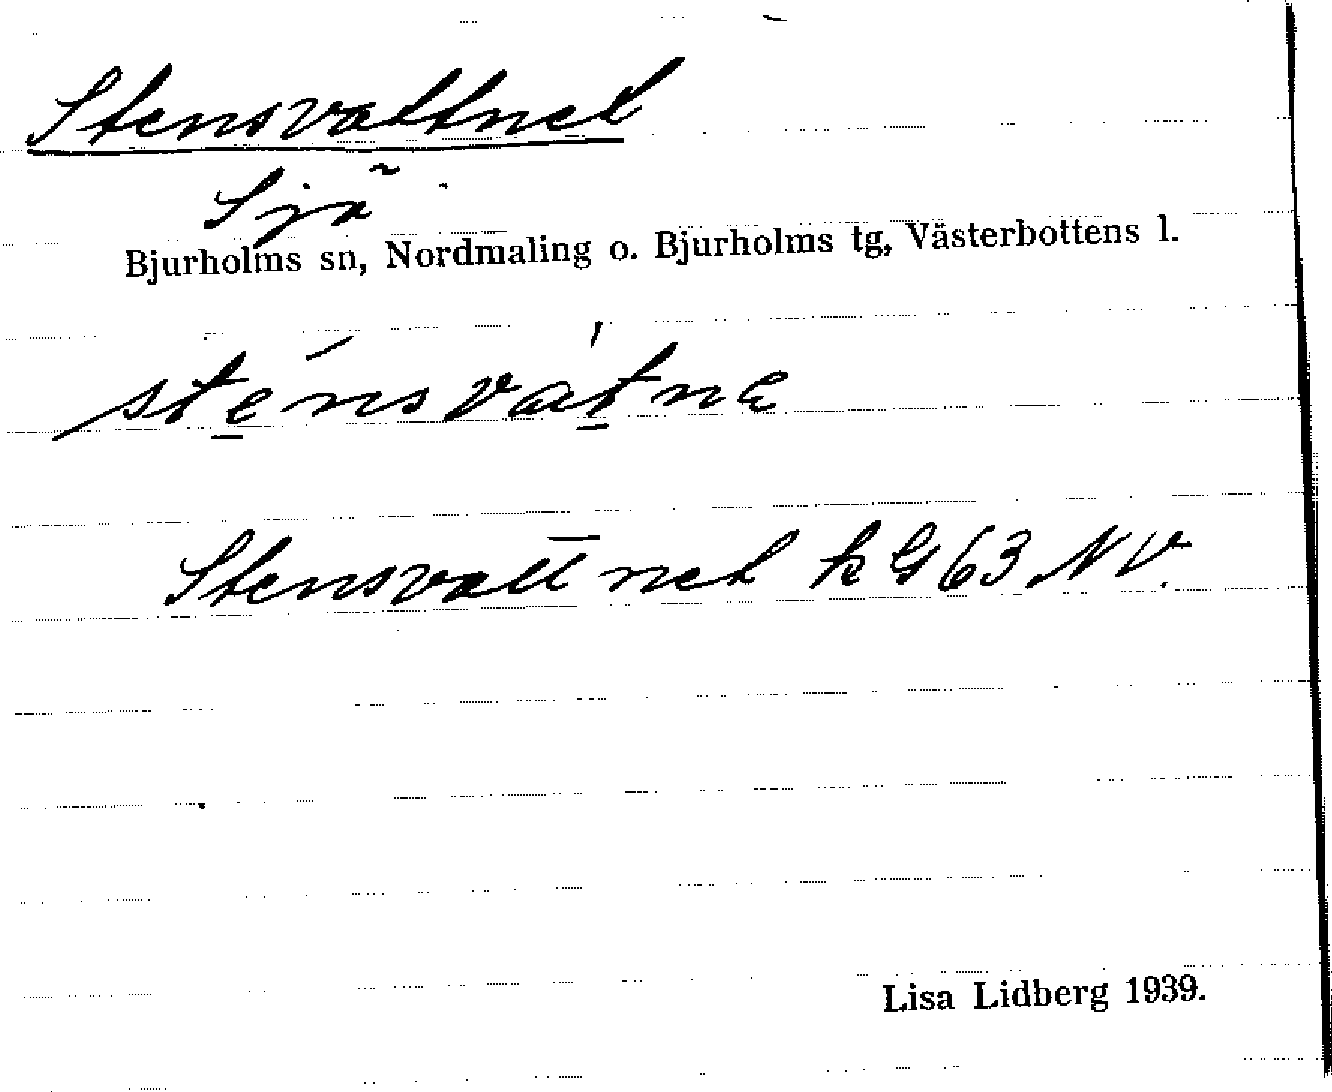 Stensvattnet
Sjö
Bjurholms sn, Nordmaling o. Bjurholms tg, Västerbottens l.
ste̲nsvat̲nɐ
Stensvatt̅net k G63 NV.
Lisa Lidberg 1939.